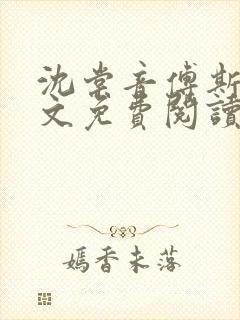 沈棠音傅斯
文免費閱讀
嫣香未落